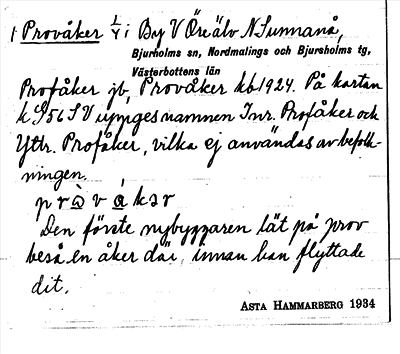 1 Provåker L/4 i By V Öreälv N Sunnanå,
Bjurholms sn, Nordmalings och Bjursholms tg,
Västerbottens län
Profåker jb, Provåker kb 1924. På kartan
k S56 SV uppges namnen Inr. Profåker och
Yttr. Profåker, vilka ej användas av befolk-
ningen.
pròvákər
Den förste nybyggaren lät på prov
beså en åker där, innan han flyttade
dit.
ASTA HAMMARBERG 1934